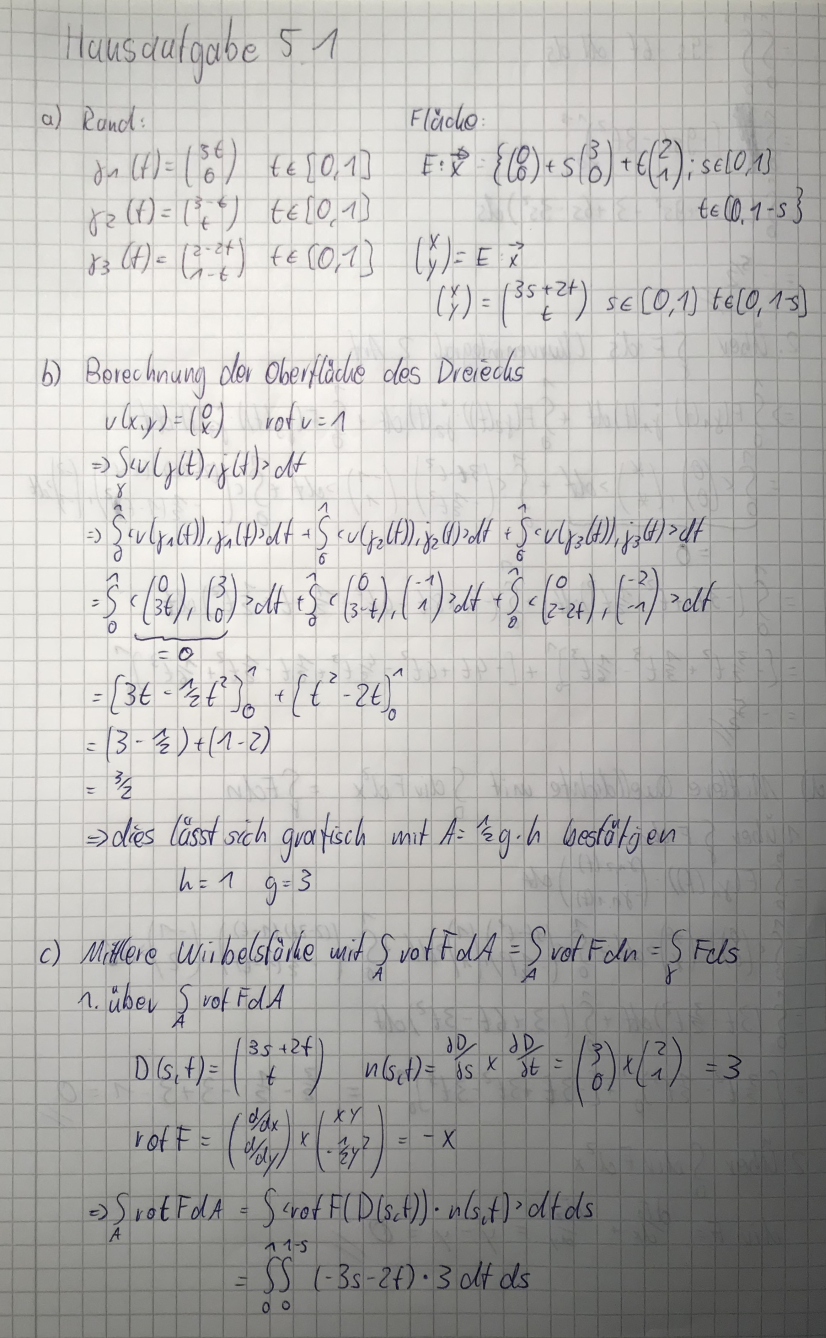 Hausaufgabe 5.1
a) Rand:
γ1(t) = (3t 0) t∈[0,1]
γ2(t) = (3-t t) t∈[0,1]
γ3(t) = (2-2t 1-t) t∈[0,1]
Fläche:
E: x⃗ = {(0 0) + s(3 0) + t(2 1); s∈[0,1]
t∈[0,1-s}
(x y) = E: x⃗
(x y) = (3s+2t t) s∈[0,1] t∈[0,1-s]
b) Berechnung der Oberfläche des Dreiecks
v(x,y) = (0 x) rot v = 1
⇒ ∫γ <v(γ(t), γ̇(t)> dt
⇒ ∫₀¹ <v(γ1(t)), γ̇1(t)> dt + ∫₀¹ <v(γ2(t)), γ̇2(t)> dt + ∫₀¹ <v(γ3(t)), γ̇3(t)> dt
= ∫₀¹ <(0 3t), (3 0)> dt + ∫₀¹ <(0 3-t), (-1 1)> dt + ∫₀¹ <(0 2-2t), (-2 -1)> dt
= 0
= [3t - ½t²]₀¹ + [t² - 2t]₀¹
= (3 - ½) + (1-2)
= 3/2
⇒ dies lässt sich grafisch mit A = ½ g·h bestätigen
h = 1 g = 3
c) Mittlere Wirbelstärke mit ∫A rot F dA = ∫A rot F dn = ∫γ F ds
1. über ∫A rot F dA
D(s,t) = (3s+2t t) n(s,t) = ∂D/∂s × ∂D/∂t = (3 0) × (2 1) = 3
rot F = (d/dx d/dy) × (xy -½y²) = -x
⇒ ∫A rot F dA = ∫ <rot F(D(s,t)) · n(s,t)> dt ds
= ∫₀¹ ∫₀¹⁻ˢ (-3s-2t) · 3 dt ds